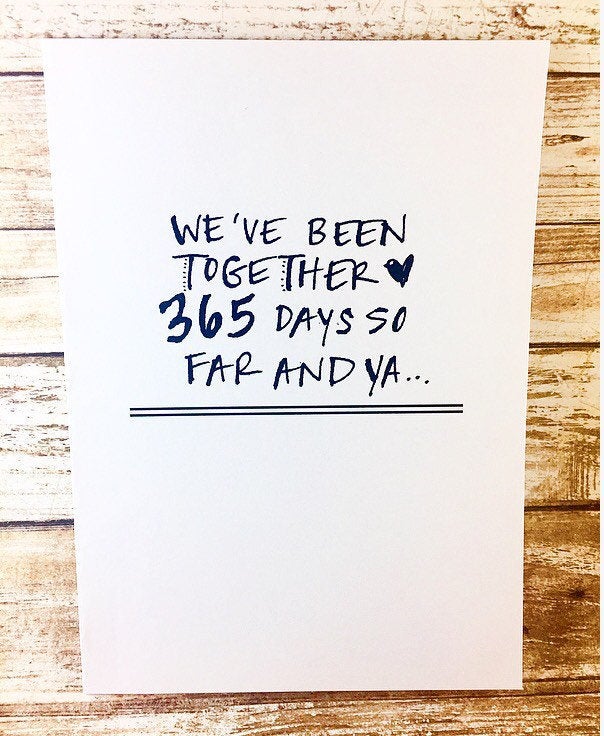 WE'VE BEEN
TOGETHER ♥
365 DAYS SO
FAR AND YA...